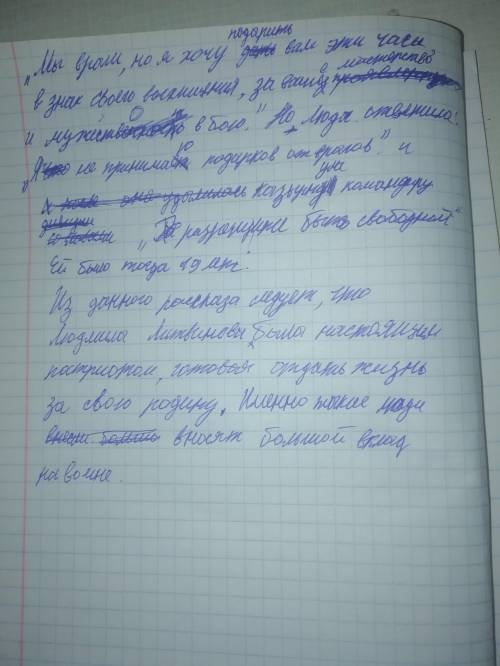 подарить
„Мы враги, но я хочу дать вам эти часы
в мастерство
в знак своего восхищения, за ваше
и мужество в бою." Но Люда ответила:
„Я не принимаю подарков от врагов." и
она удалилась командиру
„ разрешите быть свободной"
Ей было тогда 19 лет.
Из данного рассказа следует, что
Людмила Литвинова была настоящим
патриотом, готовая отдать жизнь
за свою родину. Именно такие люди
внесли вносят большой вклад
на войне.